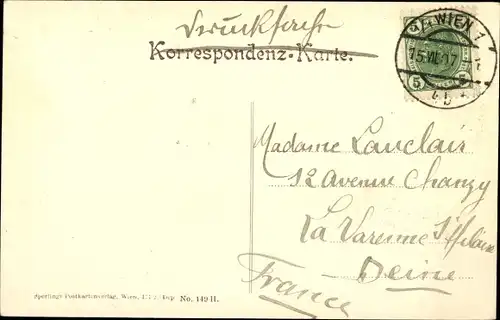 Drucksache
Korrespondenz-Karte.
WIEN 1
15.VII.07
5 5
Madame Lauclair
12 Avenue Chanzy
La Varenne St Hilaire
Seine
France
Sperlings Postkartenverlag, Wien, No. 149 II.